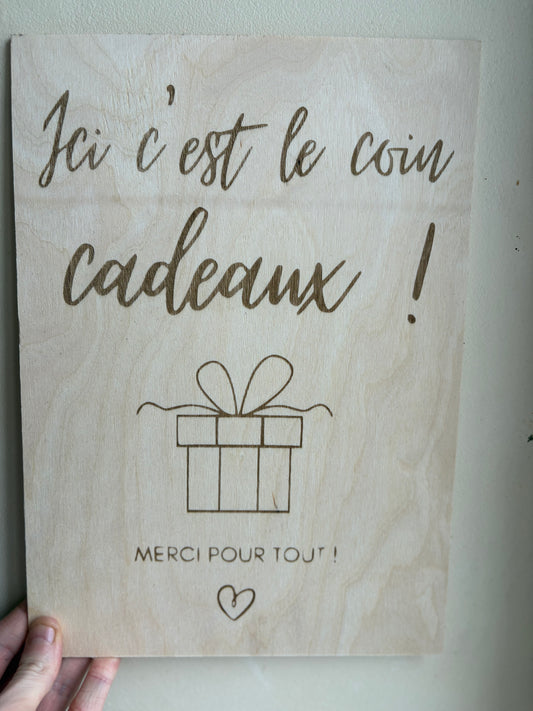 Ici c'est le coin
cadeaux !
MERCI POUR TOUT !